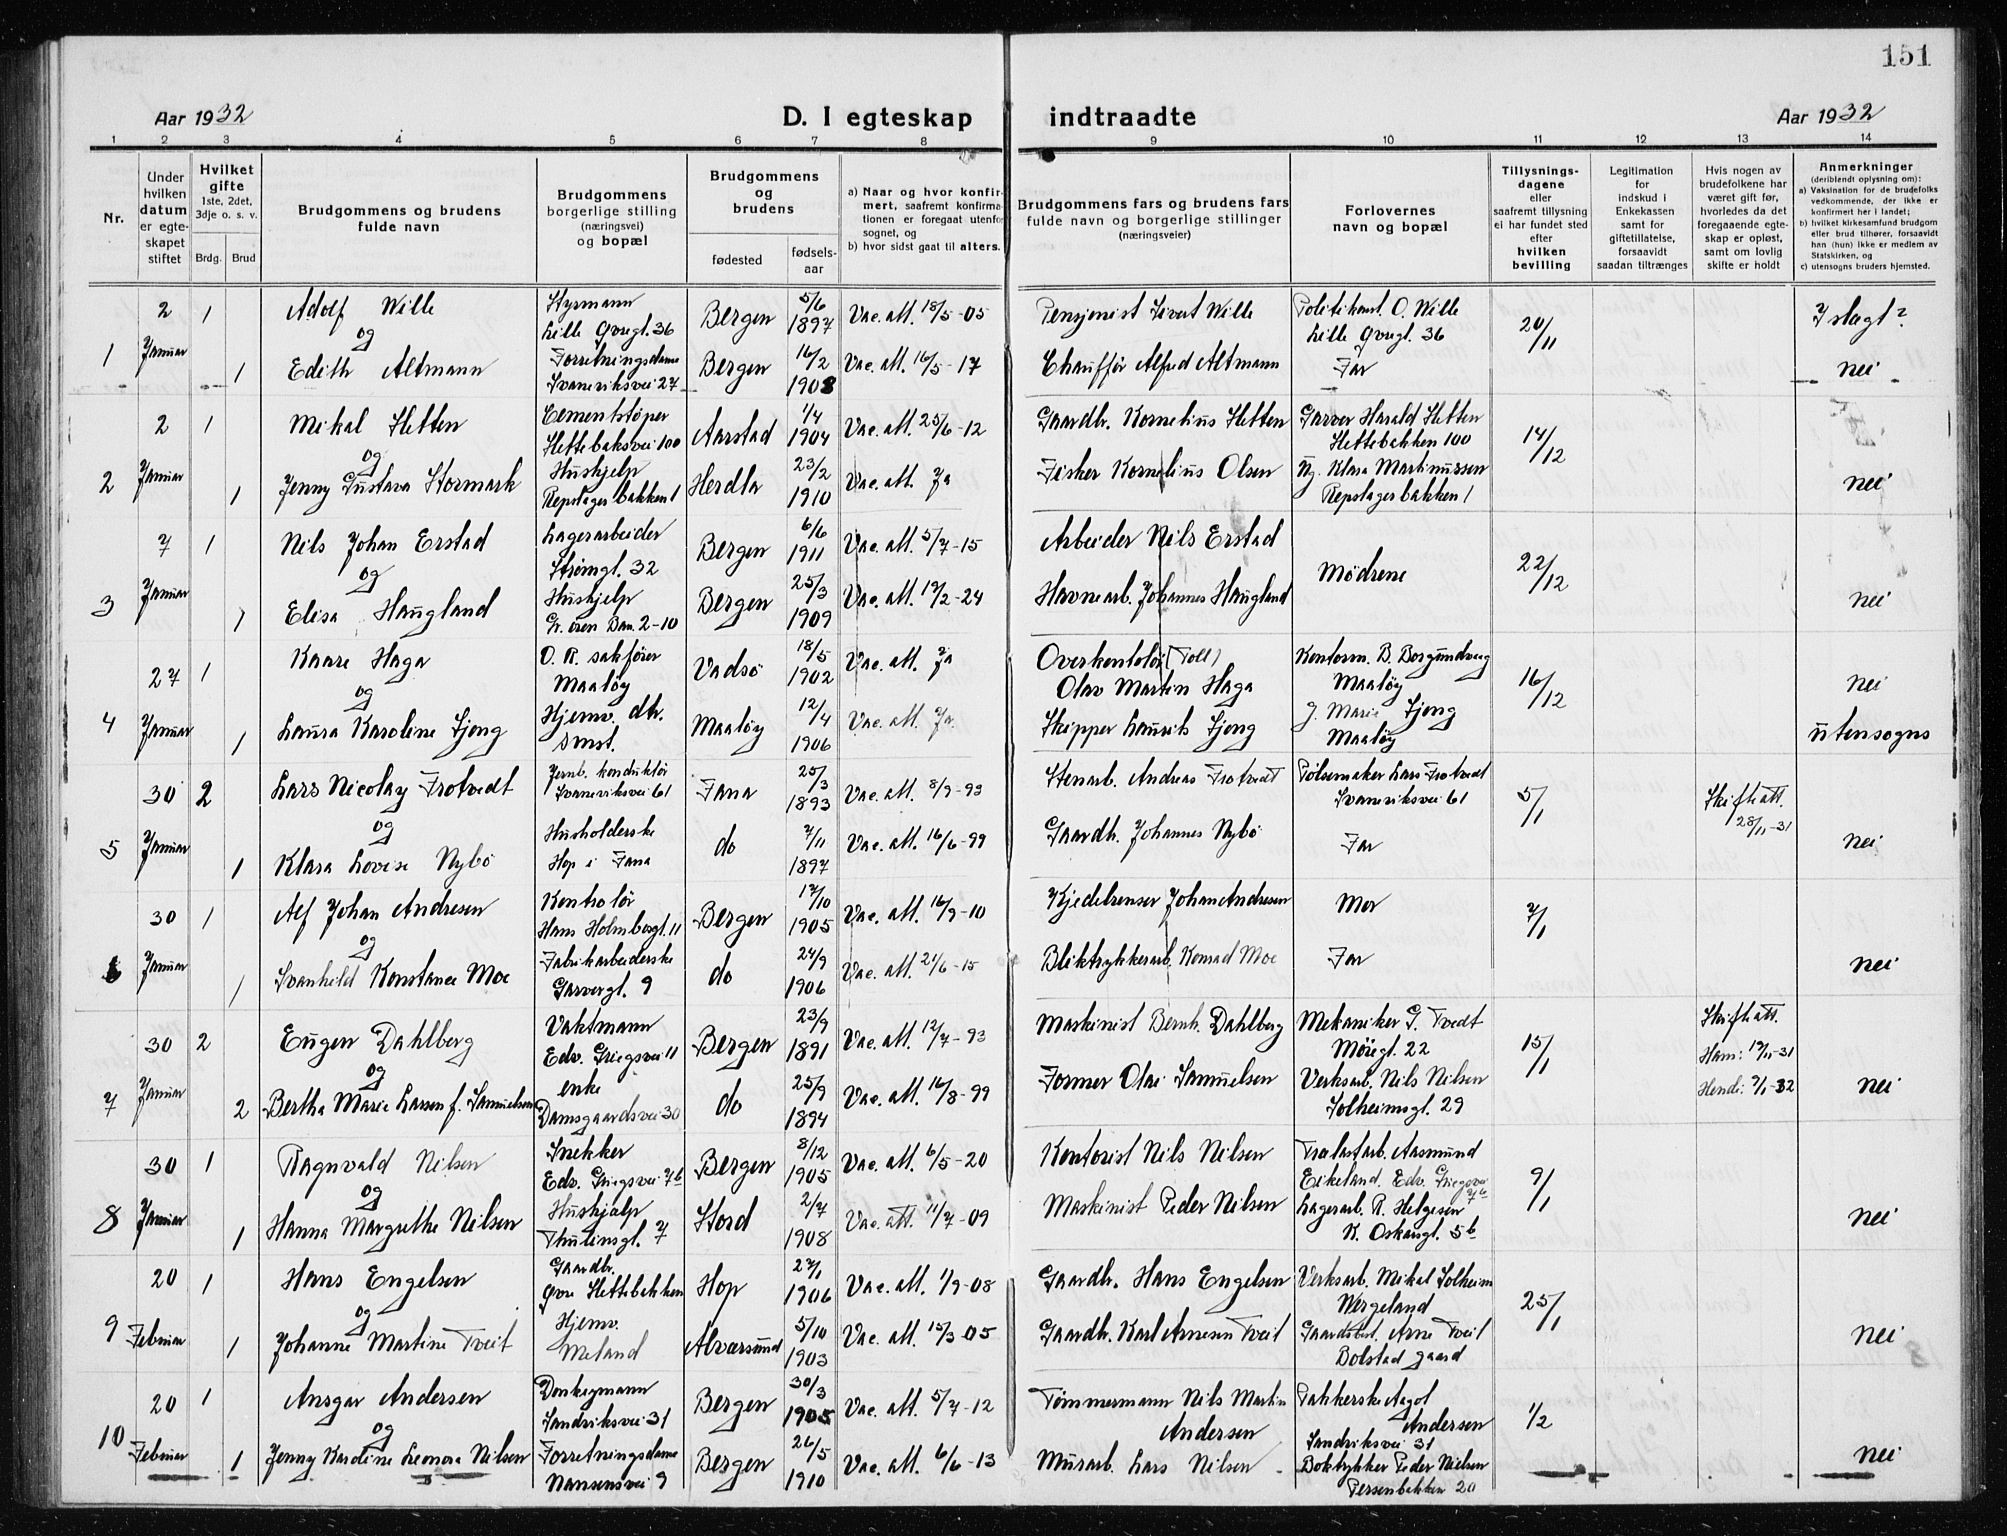 151
Aar 1932
D. I egteskap indtraadte
Aar 1932
1 2 3 4 5 6 7 8 9 10 11 12 13 14
Nr.
Under hvilken datum er egteskapet stiftet
Hvilket gifte 1ste, 2det, 3dje o. s. v.
Brdg. Brud
Brudgommens og brudens fulde navn
Brudgommens borgerlige stilling (næringsvei) og bopæl
Brudgommens og brudens
fødested fødselsaar
a) Naar og hvor konfirmert, saafremt konfirmationen er foregaat utenfor sognet, og
b) hvor sidst gaat til alters.
Brudgommens fars og brudens fars fulde navn og borgerlige stillinger (næringsveier)
Forlovernes navn og bopæl
Tillysningsdagene eller saafremt tillysning ei har fundet sted efter hvilken bevilling
Legitimation for indskud i Enkekassen samt for giftetillatelse, forsaavidt saadan tiltrænges
Hvis nogen av brudefolkene har været gift før, hvorledes da det foregaaende egteskap er opløst, samt om lovlig skifte er holdt
Anmerkninger (deriblendt oplysning om):
a) Vaksination for de brudefolks vedkommende, der ikke er konfirmert her i landet;
b) hvilket kirkesamfund brudgom eller brud tilhører, forsaavidt han (hun) ikke er medlem av Statskirken, og
c) utensogns bruders hjemsted.
1 2 Januar 1 Adolf Wille Styrmann Lille Øvregt. 36 Bergen 5/6 1897 Vac. att. 18/5-05 Pensjonist Sivert Wille Politikonst. O. Wille Lille Øvregt. 36 20/11 I slagt?
og
1 Edith Altmann Forretningsdame Svaneviksvei 27 Bergen 16/2 1908 Vac. att. 16/5-17 Chauffør Alfred Altmann Far nei
2 2 Januar 1 Mikal Sletten Cementstøper Slettebaksvei 100 Aarstad 1/4 1904 Vac. att. 25/6-12 Gaardbr. Kornelius Sletten Garver Harald Sletten Slettebakken 100 14/12
og
1 Jenny Gustava Stormark Hushjelp Repslagerbakken 1 Herdla 23/2 1910 Vac. att. Ja Fisker Kornelius Olsen Klara Martinussen Repslagerbakken 1 nei
3 7 Januar 1 Nils Johan Erstad Lagerarbeider Strømgt. 32 Bergen 6/6 1911 Vac. att. 5/7-15 Arbeider Nils Erstad Mødrene 22/12
og
1 Elisa Haugland Hushjelp 2-10 Bergen 25/3 1909 Vac. att. 19/2-24 Havnearb. Johannes Haugland nei
4 27 Januar 1 Kaare Haga O. R. sakfører Maaløy Vadsø 18/5 1902 Vac. att. Ja Overkontolør (Toll) Olav Martin Haga Kontorm. B. Borgundvaag Maaløy 16/12 nei
og
1 Laura Karoline Sjong Hjemv. dtr. smst. Maaløy 12/4 1906 Vac. att. Ja Skipper Laurits Sjong J. Marie Sjong Maaløy utensogns
5 30 Januar 2 Lars Nicolay Frotvedt Jernb. konduktør Svaneviksvei 61 Fana 25/3 1893 Vac. att. 8/9-93 Stenarb. Andreas Frotvedt Pølsemaker Lars Frotvedt Svaneviksvei 61 5/1 Skifteatt. 28/11-31
og
1 Klara Lovise Nybø Husholderske Hop i Fana do 7/11 1897 Vac. att. 16/6-99 Gaardbr. Johannes Nybø Far nei
6 30 Januar 1 Alf Johan Andresen Kontrolør Hans Holmboegt. 11 Bergen 17/10 1905 Vac. att. 16/9-10 Kjedelrenser Johan Andresen Mor 7/1
og
1 Svanhild Konstance Moe Fabrikarbeiderske Garvergt. 9 do 24/9 1906 Vac. att. 21/6-15 Bliktrykkerarb. Konrad Moe Far nei
7 30 Januar 2 Eugen Dahlberg Vaktmann Edv. Griegsvei 11 Bergen 23/9 1891 Vac. att. 12/7-93 Maskinist Bernh. Dahlberg Mekaniker G. Tvedt Møregt. 22 15/1 Skifteatt. Ham: 19/11-31
og
2 Bertha Marie Larsen f. Samuelsen enke Damsgaardsvei 30 do 25/9 1894 Vac. att. 16/8-99 Former Olai Samuelsen Verksarb. Nils Nilsen Solheimsgt. 29 Hende: 9/1-32 nei
8 30 Januar 1 Ragnvald Nilsen Snekker Edv. Griegsvei 7b Bergen 8/12 1905 Vac. att. 6/5-20 Kontorist Nils Nilsen Trælastarb. Aasmund Eikeland. Edv. Griegsvei 7b 9/1
og
1 Hanna Margrethe Nilsen Hushjalp Thulinsgt. 7 Stord 2/7 1908 Vac. att. 11/7-09 Maskinist Peder Nilsen Lagerarb. R. Helgesen K. Oskarsgt. 5b nei
9 20 Februar 1 Hans Engelsen Gaardbr. Øvre Slettebakken Hop 27/1 1906 Vac. att. 1/9-08 Gaardbr. Hans Engelsen Verksarb. Mikal Solheim Wergeland 25/1
og
1 Johanne Martine Tveit Hjemv. Meland Alversund 5/10 1903 Vac. att. 15/3-05 Gaardbr. Karl Arnesen Tveit Gaardsbest. Arne Tveit Bolstad gaard nei
10 20 Februar 1 Ansgar Andersen Donkeymann Sandviksvei 31 Bergen 30/3 1905 Vac. att. 5/7-12 Tømmermann Nils Martin Andersen Pakkerske Aagot Andersen Sandviksvei 31 1/2
og
1 Jenny Karoline Leonora Nilsen Forretningsdame Nansensvei 9 Bergen 26/5 1910 Vac. att. 6/6-13 Murarb. Lars Nilsen Boktrykker Peder Nielsen Persenbakken 20 nei